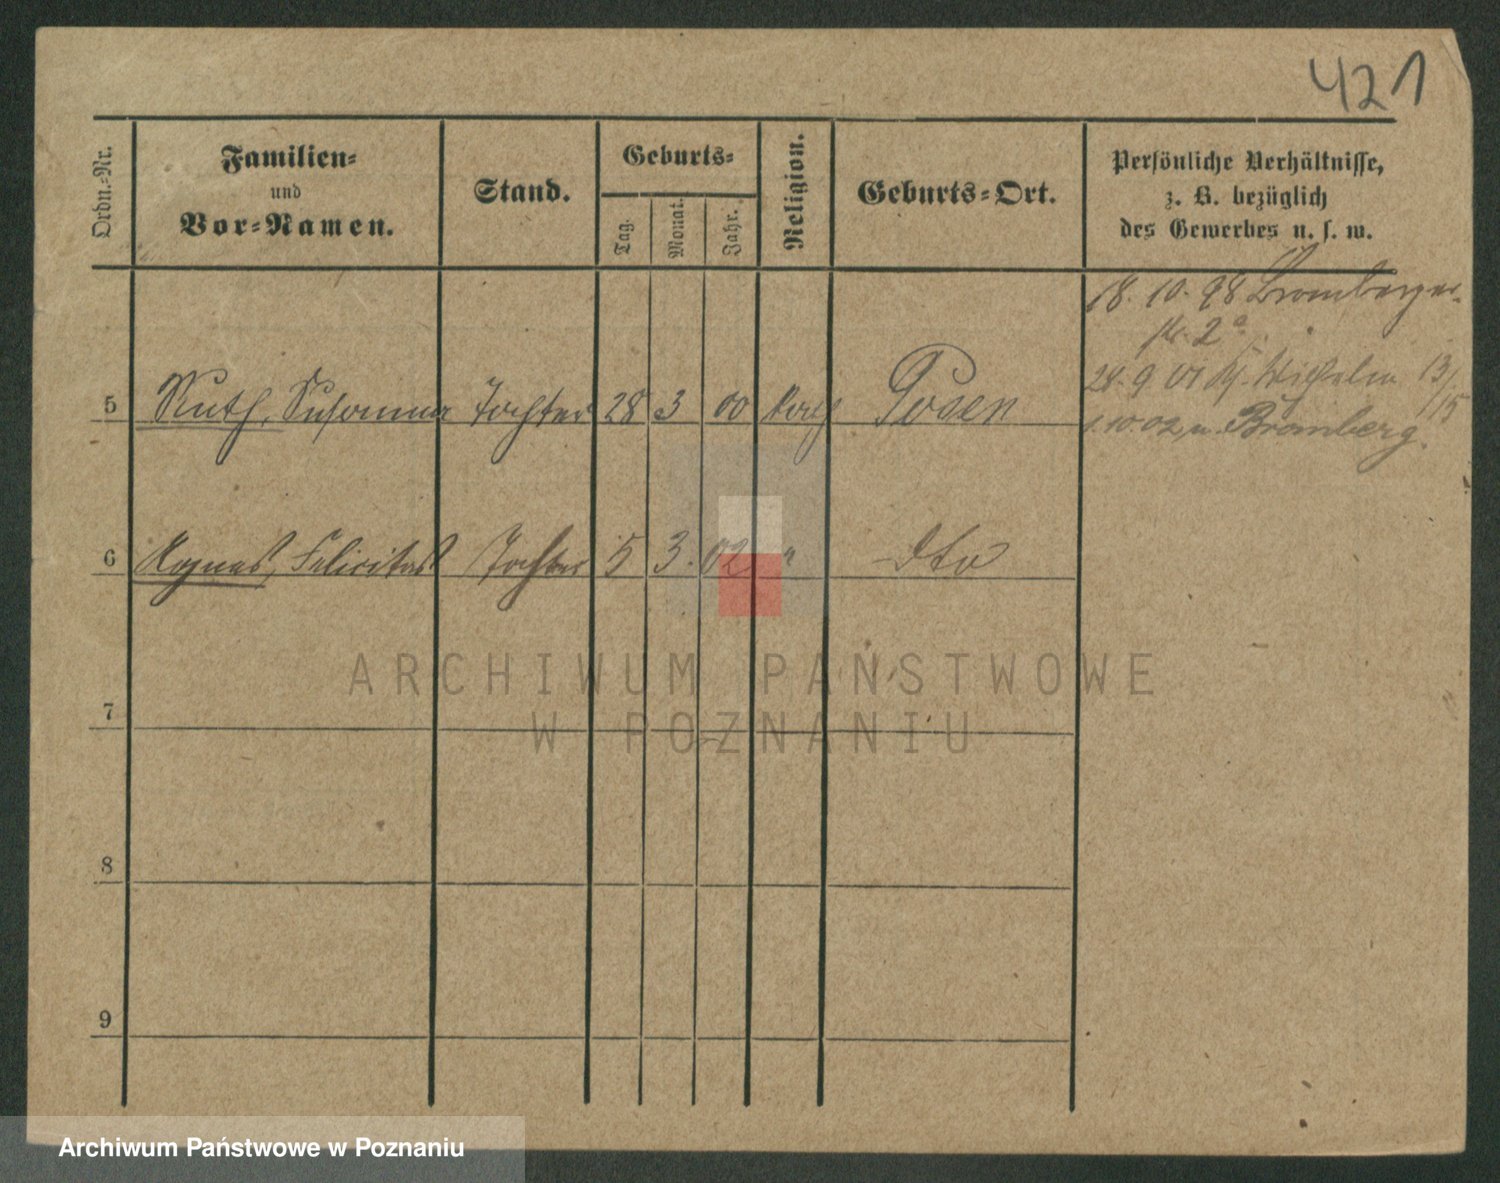 421
Ordn.-Nr.
Familien-
und
Vor-Namen.
Stand.
Geburts-
Tag.
Monat.
Jahr.
Religion.
Geburts-Ort.
Persönliche Verhältnisse,
z. B. bezüglich
des Gewerbes u. s. w.
18. 10. 98 Bromberger-
str. 2a.
28. 9. 01 Kg. Wilhelm 13/15
1.10 02 n. Bromberg.
5 Ruth, Susanna Tochter 28 3 00 kath Posen
6 Agnes, Felicitas Tochter 5 3. 02 " dto
7
8
9
ARCHIWUM PAŃSTWOWE
W POZNANIU
Archiwum Państwowe w Poznaniu